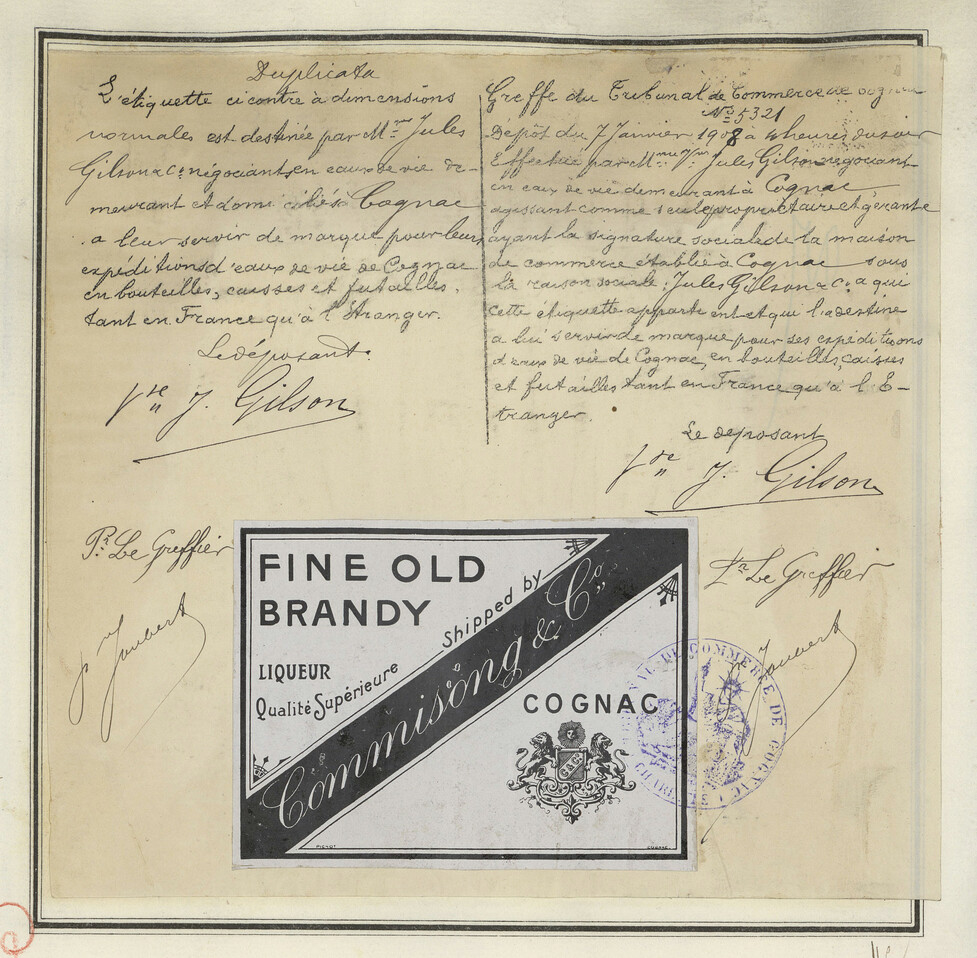 Duplicata
L'étiquette ci contre à dimensions
normales est destinée par Mme Vve Jules
Gilson & Co négociants en eaux de vie de-
meurant et domiciliés à Cognac
a leur servir de marque pour leurs
expéditions d'eaux de vie de Cognac
en bouteilles, caisses et futailles,
tant en France qu'à l'Etranger.
Le déposant.
Vve J. Gilson
Greffe du Tribunal de Commerce de Cognac
No 5321
Dépôt du 7 Janvier 1908 à 4 heures du soir
Effectué par Mme Vve Jules Gilson négociant
en eaux de vie demeurant à Cognac
agissant comme seule propriétaire et gérante
ayant la signature sociale de la maison
de commerce établie à Cognac sous
la raison sociale: Jules Gilson & Co a qui
cette étiquette appartient et qui l'a destine
a lui servir de marque pour ses expéditions
d'eaux de vie de Cognac, en bouteilles, caisses
et futailles tant en France qu'à l'E-
tranger.
Le déposant
Vve J. Gilson
Pr Le Greffier
Joubert
Pr Le Greffier
Joubert
FINE OLD
BRANDY
Shipped by
LIQUEUR
Qualité Supérieure
Commisöng & Co.
COGNAC
TRIBUNAL DE COMMERCE DE COGNAC